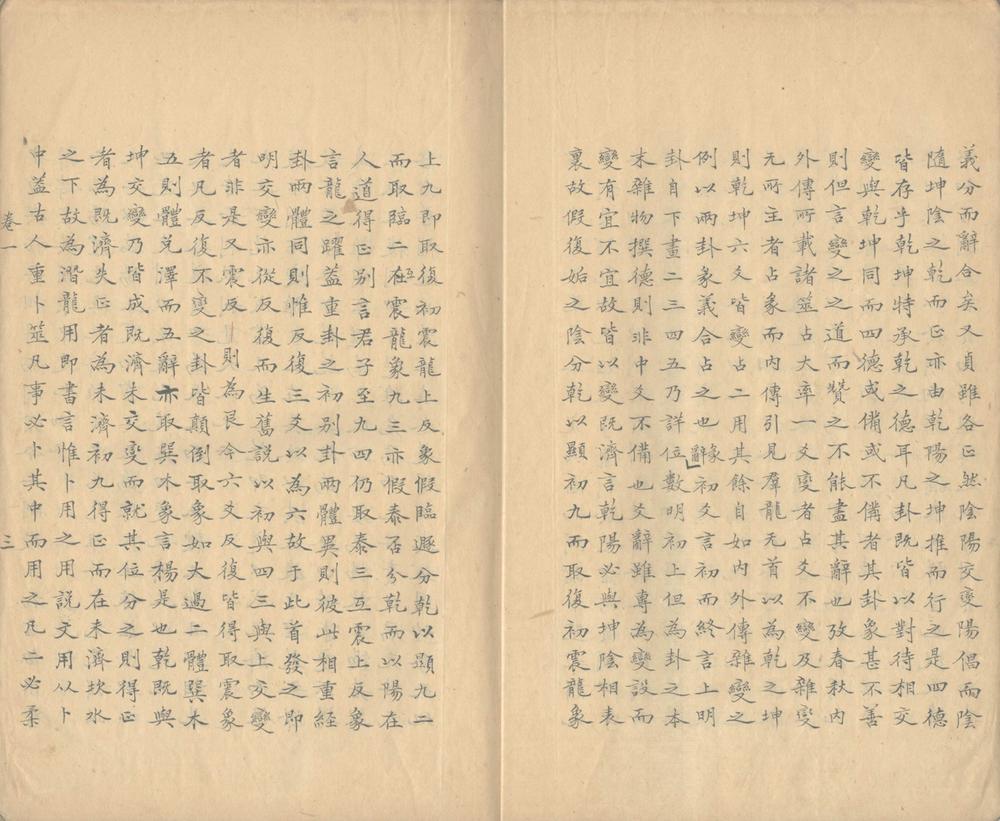 義分而辭合矣又貞雖各正然陰陽交變陽倡而陰
隨坤陰之乾而正亦由乾陽之坤推而行之是四德
皆存乎乾坤特承乾之德耳凡卦既皆以對待相交
變與乾坤同而四德或備或不備者其卦象甚不善
則但言變之之道而贊之不能盡其辭也攷春秋內
外傳所載諸筮占大率一爻變者占爻不變及雜變
无所主者占象而內傳引見羣龍无首以為乾之坤
則乾坤六爻皆變占二用其餘自如內外傳雜變之
例以兩卦象義合占之也象辭初爻言初而終言上明
卦自下畫二三四五乃詳位數明初上但為卦之本
末雜物撰德則非中爻不備也爻辭雖專為變設而
變有宜不宜故皆以變既濟言乾陽必與坤陰相表
裏故假復姤之陰分乾以顯初九而取復初震龍象
上九即取復初震龍上反象假臨遯分乾以顯九二
而取臨二在互震龍象九三亦假泰否分乾而以陽在
人道得正别言君子至九四仍取泰三互震上反象
言龍之躍蓋重卦之初别卦兩體異則彼此相重経
卦兩體同則惟反復三爻以為六故于此首發之即
明交變亦從反復而生舊說以初與四三與上交變
者非是又震反則為艮今六爻反復皆得取震象
者凡反復不變之卦皆顛倒取象如大過二體巽木
五則體兌澤而五辭亦取巽木象言楊是也乾既與
坤交變乃皆成既濟未交變而就其位分之則得正
者為既濟失正者為未濟初九得正而在未濟坎水
之下故為潛龍用即書言惟卜用之用說文用从卜
中蓋古人重卜筮凡事必卜其中而用之凡二必柔
卷一
三